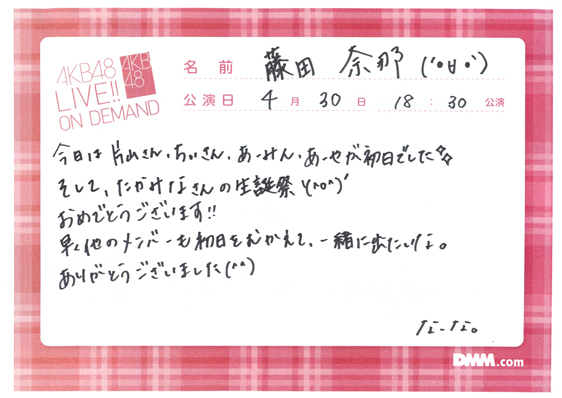 AKB48
LIVE!!
ON DEMAND
AKB
48
名前 藤田 奈那 (´•ㅂ•`)
公演日 4月30日 18:30公演
今日は片山さん、ちぃさん、あーみん、あーやが初日でした
そして、たかみなさんの生誕祭\(^o^)/
おめでとうございます!!
早く他のメンバーも初日をむかえて、一緒に出たいな。
ありがとうございました(^^)
なーな。
DMM.com